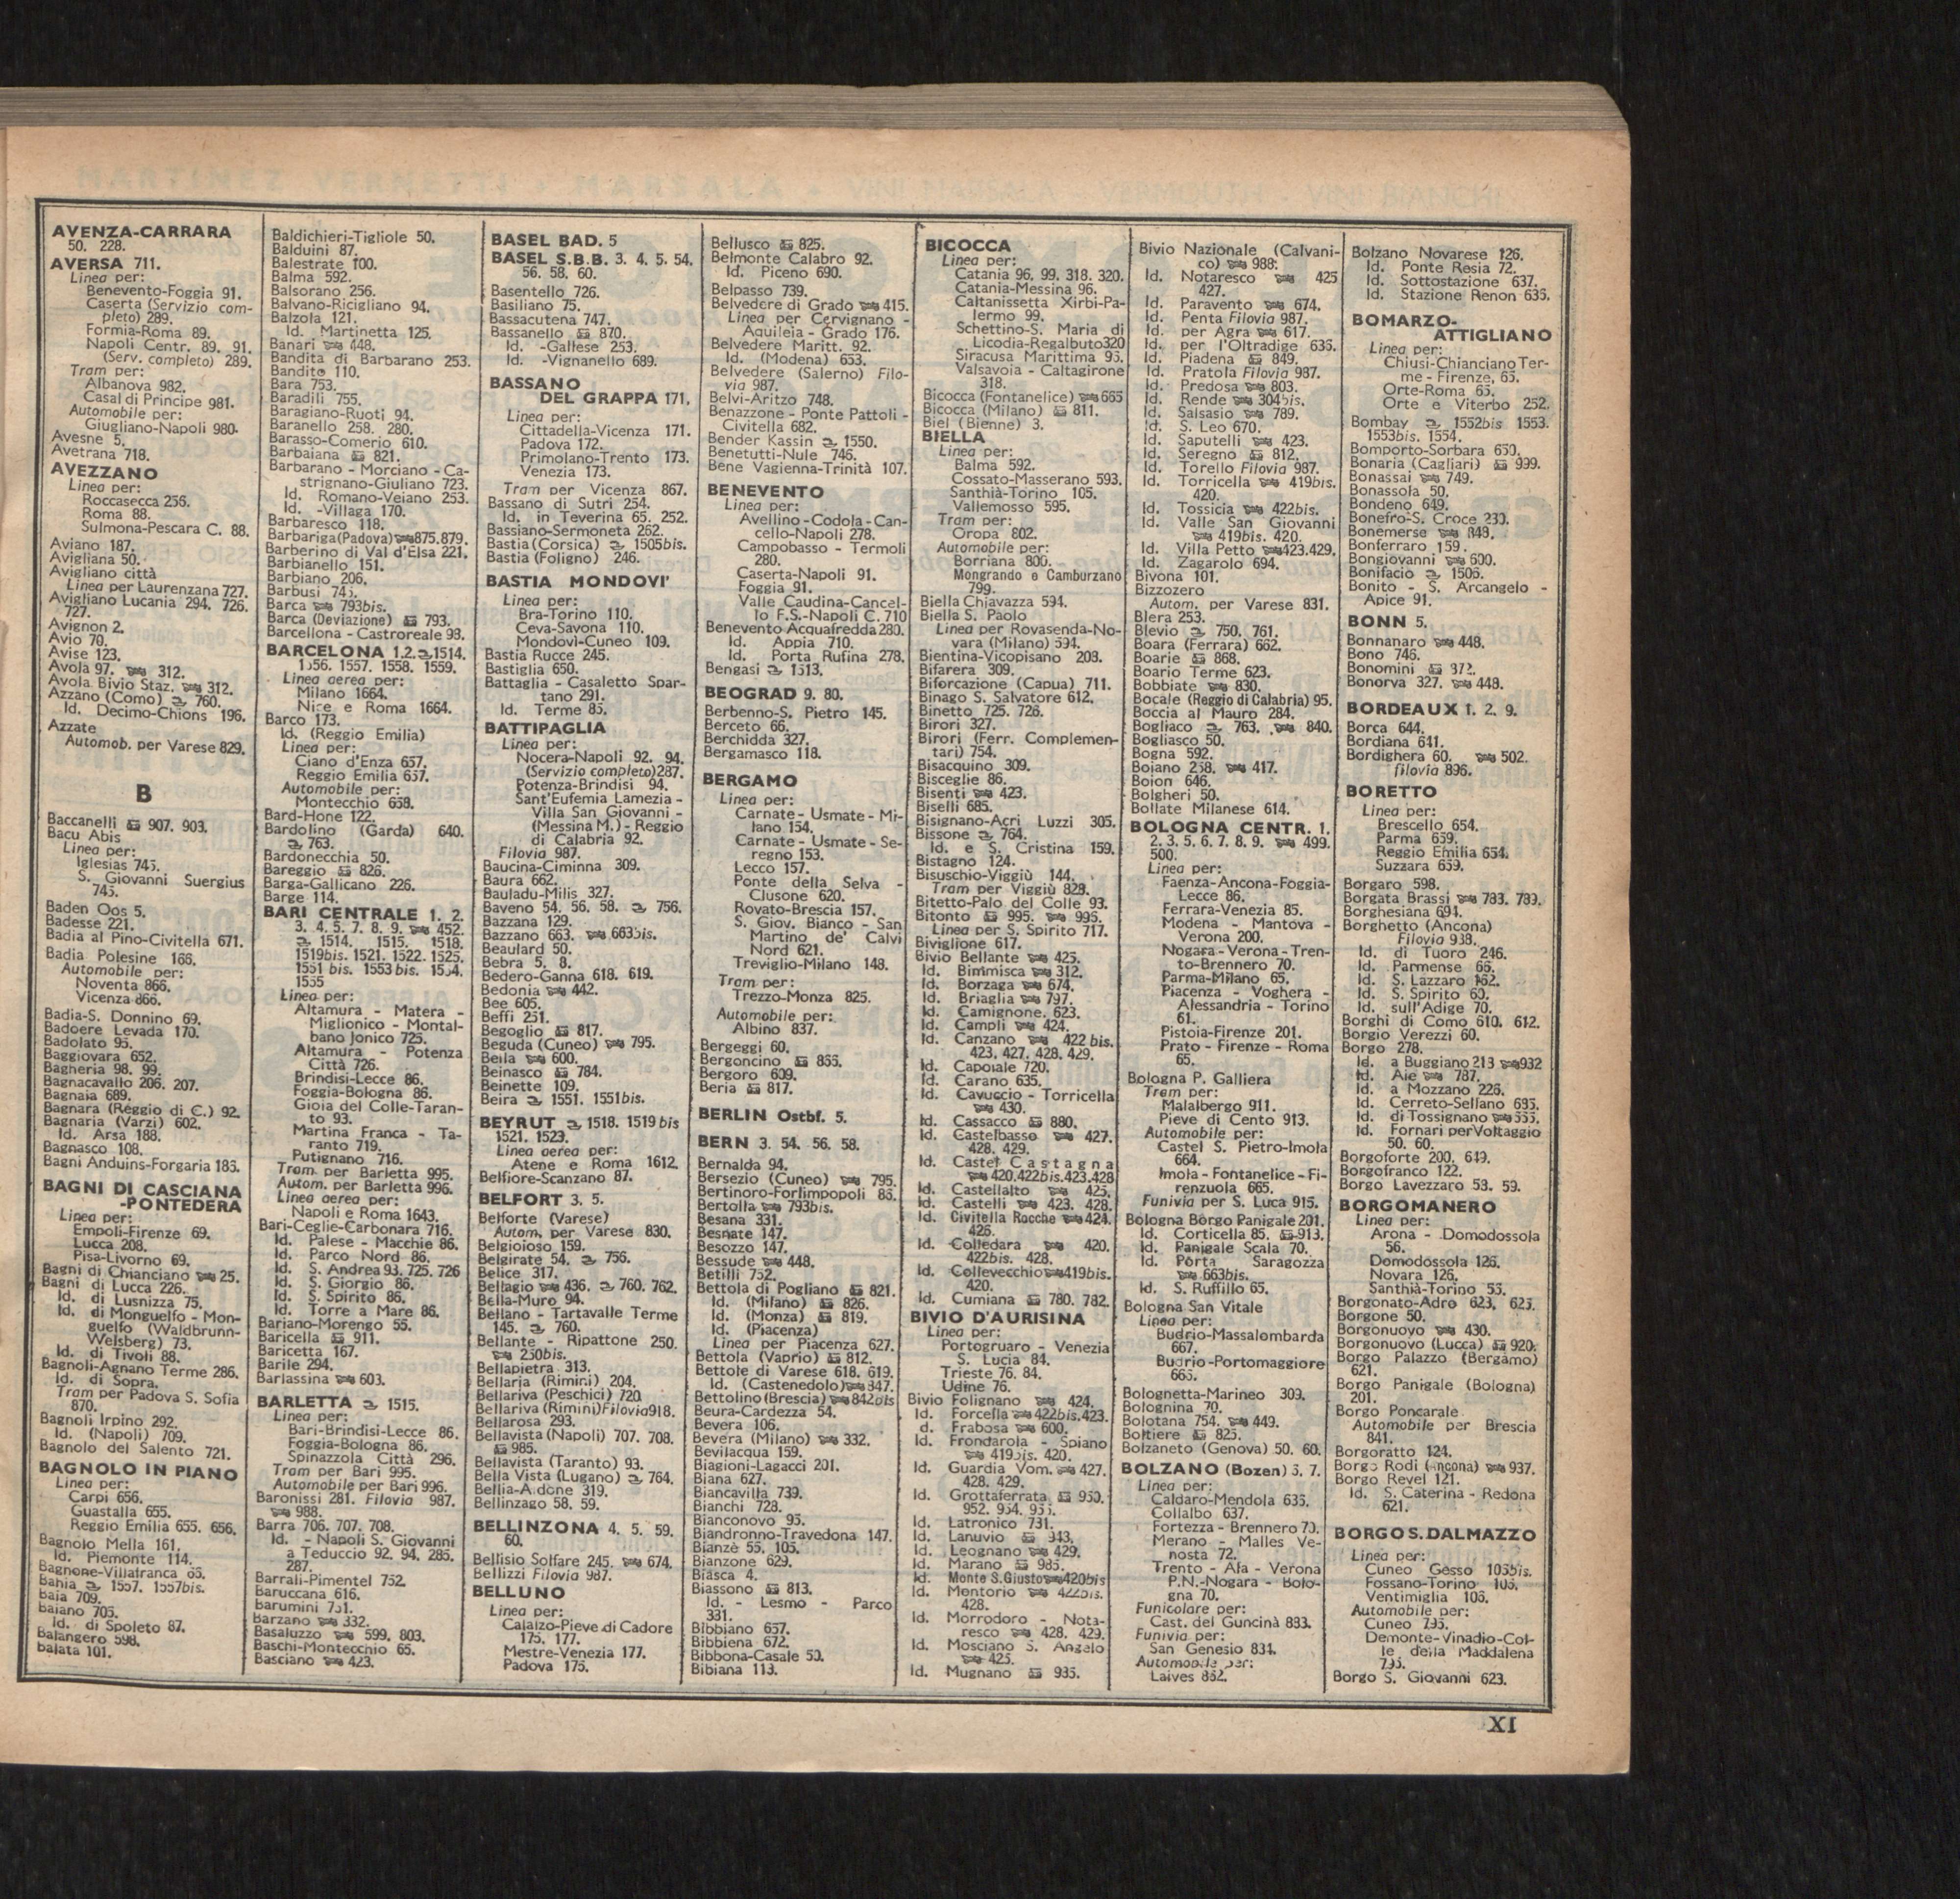 AVENZA-CARRARA
50. 228.
AVERSA 711.
Linea per:
Benevento-Foggia 91.
Caserta (Servizio com-
pleto) 289.
Formia-Roma 89.
Napoli Centr. 89. 91.
(Serv. completo) 289.
Tram per:
Albanova 982.
Casal di Principe 981.
Automobile per:
Giugliano-Napoli 980.
Avesne 5.
Avetrana 718.
AVEZZANO
Linea per:
Roccasecca 256.
Roma 88.
Sulmona-Pescara C. 88.
Aviano 187.
Avigliana 50.
Avigliano città
Linea per Laurenzana 727.
Avigliano Lucania 294. 726.
727.
Avignon 2.
Avio 70.
Avise 123.
Avola 97. 312.
Avola Bivio Staz. 312.
Azzano (Como) 760.
Id. Decimo-Chions 196.
Azzate
Automob. per Varese 829.
B
Baccanelli 907. 903.
Bacu Abis
Linea per:
Iglesias 745.
S. Giovanni Suergius
745.
Baden Oos 5.
Badesse 221.
Badia al Pino-Civitella 671.
Badia Polesine 166.
Automobile per:
Noventa 866.
Vicenza 866.
Badia-S. Donnino 69.
Badoere Levada 170.
Badolato 95.
Baggiovara 652.
Bagheria 98. 99.
Bagnacavallo 206. 207.
Bagnaia 689.
Bagnara (Reggio di C.) 92.
Bagnaria (Varzi) 602.
Id. Arsa 188.
Bagnasco 108.
Bagni Anduins-Forgaria 185.
BAGNI DI CASCIANA
-PONTEDERA
Linea per:
Empoli-Firenze 69.
Lucca 208.
Pisa-Livorno 69.
Bagni di Chianciano 25.
Bagni di Lucca 226.
Id. di Lusnizza 75.
Id. di Monguelfo - Mon-
guelfo (Waldbrunn-
Welsberg) 73.
Id. di Tivoli 88.
Bagnoli-Agnano Terme 286.
Id. di Sopra.
Tram per Padova S. Sofia
870.
Bagnoli Irpino 292.
Id. (Napoli) 709.
Bagnolo del Salento 721.
BAGNOLO IN PIANO
Linea per:
Carpi 656.
Guastalla 655.
Reggio Emilia 655. 656.
Bagnolo Mella 161.
Id. Piemonte 114.
Bagnone-Villafranca 66.
Bahia 1557. 1557bis.
Baia 709.
Baiano 705.
Id. di Spoleto 87.
Balangero 598.
Balata 101.
Baldichieri-Tigliole 50.
Balduini 87.
Balestrate 100.
Balma 592.
Balsorano 256.
Balvano-Ricigliano 94.
Balzola 121.
Id. Martinetta 125.
Banari 448.
Bandita di Barbarano 253.
Bandito 110.
Bara 753.
Baradili 755.
Baragiano-Ruoti 94.
Baranello 258. 280.
Barasso-Comerio 610.
Barbaiana 821.
Barbarano - Morciano - Ca-
strignano-Giuliano 723.
Id. Romano-Veiano 253.
Id. -Villaga 170.
Barbaresco 118.
Barbariga(Padova) 875.879.
Barberino di Val d'Elsa 221.
Barbianello 151.
Barbiano 206.
Barbusi 745.
Barca 793bis.
Barca (Deviazione) 793.
Barcellona - Castroreale 98.
BARCELONA 1.2. 1514.
1556. 1557. 1558. 1559.
Linea aerea per:
Milano 1664.
Nice e Roma 1664.
Barco 173.
Id. (Reggio Emilia)
Linea per:
Ciano d'Enza 657.
Reggio Emilia 657.
Automobile per:
Montecchio 658.
Bard-Hone 122.
Bardolino (Garda) 640.
763.
Bardonecchia 50.
Bareggio 826.
Barga-Gallicano 226.
Barge 114.
BARI CENTRALE 1. 2.
3. 4. 5. 7. 8. 9. 452.
1514. 1515. 1518.
1519bis. 1521. 1522. 1525.
1551 bis. 1553 bis. 1554.
1555
Linea per:
Altamura - Matera -
Miglionico - Montal-
bano Jonico 725.
Altamura - Potenza
Città 726.
Brindisi-Lecce 86.
Foggia-Bologna 86.
Gioia del Colle-Taran-
to 93.
Martina Franca - Ta-
ranto 719.
Putignano 716.
Tram. per Barletta 995.
Autom. per Barletta 996.
Linea aerea per:
Napoli e Roma 1643.
Bari-Ceglie-Carbonara 716.
Id. Palese - Macchie 86.
Id. Parco Nord 86.
Id. S. Andrea 93. 725. 726
Id. S. Giorgio 86.
Id. S. Spirito 86.
Id. Torre a Mare 86.
Bariano-Morengo 55.
Baricella 911.
Baricetta 167.
Barile 294.
Barlassina 603.
BARLETTA 1515.
Linea per:
Bari-Brindisi-Lecce 86.
Foggia-Bologna 86.
Spinazzola Città 296.
Tram per Bari 995.
Automobile per Bari 996.
Baronissi 281. Filovia 987.
988.
Barra 706. 707. 708.
Id. - Napoli S. Giovanni
a Teduccio 92. 94. 285.
287.
Barrali-Pimentel 752.
Baruccana 616.
Barumini 751.
Barzano 332.
Basaluzzo 599. 803.
Baschi-Montecchio 65.
Basciano 423.
BASEL BAD. 5
BASEL S.B.B. 3. 4. 5. 54.
56. 58. 60.
Basentello 726.
Basiliano 75.
Bassacutena 747.
Bassanello 870.
Id. -Gallese 253.
Id. -Vignanello 689.
BASSANO
DEL GRAPPA 171.
Linea per:
Cittadella-Vicenza 171.
Padova 172.
Primolano-Trento 173.
Venezia 173.
Tram per Vicenza 867.
Bassano di Sutri 254.
Id. in Teverina 65. 252.
Bassiano-Sermoneta 262.
Bastia (Corsica) 1505bis.
Bastia (Foligno) 246.
BASTIA MONDOVI'
Linea per:
Bra-Torino 110.
Ceva-Savona 110.
Mondovì-Cuneo 109.
Bastia Rucce 245.
Bastiglia 650.
Battaglia - Casaletto Spar-
tano 291.
Id. Terme 85.
BATTIPAGLIA
Linea per:
Nocera-Napoli 92. 94.
(Servizio completo)287.
Potenza-Brindisi 94.
Sant'Eufemia Lamezia -
Villa San Giovanni -
(Messina M.) - Reggio
di Calabria 92.
Filovia 987.
Baucina-Ciminna 309.
Baura 662.
Bauladu-Milis 327.
Baveno 54. 56. 58. 756.
Bazzana 129.
Bazzano 663. 663bis.
Beaulard 50.
Bebra 5. 8.
Bedero-Ganna 618. 619.
Bedonia 442.
Bee 605.
Beffi 251.
Begoglio 817.
Beguda (Cuneo) 795.
Beila 600.
Beinasco 784.
Beinette 109.
Beira 1551. 1551bis.
BEYRUT 1518. 1519 bis
1521. 1523.
Linea aerea per:
Atene e Roma 1612.
Belfiore-Scanzano 87.
BELFORT 3. 5.
Belforte (Varese)
Autom. per Varese 830.
Belgioioso 159.
Belgirate 54. 756.
Belice 317.
Bellagio 436. 760. 762.
Bella-Muro 94.
Bellano - Tartavalle Terme
145. 760.
Bellante - Ripattone 250.
250bis.
Bellapietra 313.
Bellaria (Rimini) 204.
Bellariva (Peschici) 720
Bellariva (Rimini)Filovia918.
Bellarosa 293.
Bellavista (Napoli) 707. 708.
985.
Bellavista (Taranto) 93.
Bella Vista (Lugano) 764.
Bellia-Aidone 319.
Bellinzago 58. 59.
BELLINZONA 4. 5. 59.
60.
Bellisio Solfare 245. 674.
Bellizzi Filovia 987.
BELLUNO
Linea per:
Calalzo-Pieve di Cadore
175. 177.
Mestre-Venezia 177.
Padova 175.
Bellusco 825.
Belmonte Calabro 92.
Id. Piceno 690.
Belpasso 739.
Belvedere di Grado 415.
Linea per Cervignano -
Aquileia - Grado 176.
Belvedere Maritt. 92.
Id. (Modena) 653.
Belvedere (Salerno) Filo-
via 987.
Belvi-Aritzo 748.
Benazzone - Ponte Pattoli -
Civitella 682.
Bender Kassin 1550.
Benetutti-Nule 746.
Bene Vagienna-Trinità 107.
BENEVENTO
Linea per:
Avellino-Codola-Can-
cello-Napoli 278.
Campobasso - Termoli
280.
Caserta-Napoli 91.
Foggia 91.
Valle Caudina-Cancel-
lo F.S.-Napoli C. 710
Benevento Acquafredda 280.
Id. Appia 710.
Id. Porta Rufina 278.
Bengasi 1513.
BEOGRAD 9. 80.
Berbenno-S. Pietro 145.
Berceto 66.
Berchidda 327.
Bergamasco 118.
BERGAMO
Linea per:
Carnate - Usmate - Mi-
lano 154.
Carnate - Usmate - Se-
regno 153.
Lecco 157.
Ponte della Selva -
Clusone 620.
Rovato-Brescia 157.
S. Giov. Bianco - San
Martino de' Calvi
Nord 621.
Treviglio-Milano 148.
Tram per:
Trezzo-Monza 825.
Automobile per:
Albino 837.
Bergeggi 60.
Bergoncino 866.
Bergoro 609.
Beria 817.
BERLIN Ostbf. 5.
BERN 3. 54. 56. 58.
Bernalda 94.
Bersezio (Cuneo) 795.
Bertinoro-Forlimpopoli 86.
Bertolla 793bis.
Besana 331.
Besnate 147.
Besozzo 147.
Bessude 448.
Betilli 752.
Bettola di Pogliano 821.
Id. (Milano) 826.
Id. (Monza) 819.
Id. (Piacenza)
Linea per Piacenza 627.
Bettola (Vaprio) 812.
Bettole di Varese 618. 619.
Id. (Castenedolo) 847.
Bettolino (Brescia) 842bis
Beura-Cardezza 54.
Bevera 106.
Bevera (Milano) 332.
Bevilacqua 159.
Biagioni-Lagacci 201.
Biana 627.
Biancavilla 739.
Bianchi 728.
Bianconovo 95.
Biandronno-Travedona 147.
Bianzè 55. 105.
Bianzone 629.
Biasca 4.
Biassono 813.
Id. - Lesmo - Parco
331.
Bibbiano 657.
Bibbiena 672.
Bibbona-Casale 50.
Bibiana 113.
BICOCCA
Linea per:
Catania 96. 99. 318. 320.
Catania-Messina 96.
Caltanissetta Xirbi-Pa-
lermo 99.
Schettino-S. Maria di
Licodia-Regalbuto320
Siracusa Marittima 95.
Valsavoia - Caltagirone
318.
Bicocca (Fontanelice) 665
Bicocca (Milano) 811.
Biel (Bienne) 3.
BIELLA
Linea per:
Balma 592.
Cossato-Masserano 593.
Santhià-Torino 105.
Vallemosso 595.
Tram per:
Oropa 802.
Automobile per:
Borriana 800.
Mongrando e Camburzano
799.
Biella Chiavazza 594.
Biella S. Paolo
Linea per Rovasenda-No-
vara (Milano) 594.
Bientina-Vicopisano 208.
Bifarera 309.
Biforcazione (Capua) 711.
Binago S. Salvatore 612.
Binetto 725. 726.
Birori 327.
Birori (Ferr. Complemen-
tari) 754.
Bisacquino 309.
Bisceglie 86.
Bisenti 423.
Biselli 685.
Bisignano-Acri Luzzi 305.
Bissone 764.
Id. e S. Cristina 159.
Bistagno 124.
Bisuschio-Viggiù 144.
Tram per Viggiù 828.
Bitetto-Palo del Colle 93.
Bitonto 995. 996.
Linea per S. Spirito 717.
Biviglione 617.
Bivio Bellante 425.
Id. Bimmisca 312.
Id. Borzaga 674.
Id. Briaglia 797.
Id. Camignone. 623.
Id. Campli 424.
Id. Canzano 422 bis.
423. 427. 428. 429.
Id. Capoiale 720.
Id. Carano 635.
Id. Cavuccio - Torricella
430.
Id. Cassacco 880.
Id. Castelbasso 427.
428. 429.
Id. Castel Castagna
420.422bis.423.428
Id. Castellalto 425.
Id. Castelli 423. 428.
Id. Civitella Rocche 424.
426.
Id. Colledara 420.
422bis. 428.
Id. Collevecchio 419bis.
420.
Id. Cumiana 780. 782.
BIVIO D'AURISINA
Linea per:
Portogruaro - Venezia
S. Lucia 84.
Trieste 76. 84.
Udine 76.
Bivio Folignano 424.
Id. Forcella 422bis.423.
d. Frabosa 600.
Id. Frondarola - Spiano
419bis. 420.
Id. Guardia Vom. 427.
428. 429.
Id. Grottaferrata 950.
952. 954. 955.
Id. Latronico 731.
Id. Lanuvio 943.
Id. Leognano 429.
Id. Marano 985.
Id. Monte S.Giusto 420bis
Id. Montorio 422bis.
428.
Id. Morrodoro - Nota-
resco 428. 429.
Id. Mosciano S. Angelo
425.
Id. Mugnano 935.
Bivio Nazionale (Calvani-
co) 988.
Id. Notaresco 425
427.
Id. Paravento 674.
Id. Penta Filovia 987.
Id. per Agra 617.
Id. per l'Oltradige 635.
Id. Piadena 849.
Id. Pratola Filovia 987.
Id. Predosa 803.
Id. Rende 304bis.
Id. Salsasio 789.
Id. S. Leo 670.
Id. Saputelli 423.
Id. Seregno 812.
Id. Torello Filovia 987.
Id. Torricella 419bis.
420.
Id. Tossicia 422bis.
Id. Valle San Giovanni
419bis. 420.
Id. Villa Petto 423.429.
Id. Zagarolo 694.
Bivona 101.
Bizzozero
Autom. per Varese 831.
Blera 253.
Blevio 750. 761.
Boara (Ferrara) 662.
Boarie 868.
Boario Terme 623.
Bobbiate 830.
Bocale (Reggio di Calabria) 95.
Boccia al Mauro 284.
Bogliaco 763. 840.
Bogliasco 50.
Bogna 592.
Boiano 258. 417.
Boion 646.
Bolgheri 50.
Bollate Milanese 614.
BOLOGNA CENTR. 1.
2. 3. 5. 6. 7. 8. 9. 499.
500.
Linea per:
Faenza-Ancona-Foggia-
Lecce 86.
Ferrara-Venezia 85.
Modena - Mantova -
Verona 200.
Nogara-Verona-Tren-
to-Brennero 70.
Parma-Milano 65.
Piacenza - Voghera -
Alessandria - Torino
61.
Pistoia-Firenze 201.
Prato - Firenze - Roma
65.
Bologna P. Galliera
Tram per:
Malalbergo 911.
Pieve di Cento 913.
Automobile per:
Castel S. Pietro-Imola
664.
Imola - Fontanelice - Fi-
renzuola 665.
Funivia per S. Luca 915.
Bologna Borgo Panigale 201.
Id. Corticella 85. 913.
Id. Panigale Scala 70.
Id. Porta Saragozza
663bis.
Id. S. Ruffillo 65.
Bologna San Vitale
Linea per:
Budrio-Massalombarda
667.
Budrio-Portomaggiore
665.
Bolognetta-Marineo 309.
Bolognina 70.
Bolotana 754. 449.
Boltiere 825.
Bolzaneto (Genova) 50. 60.
BOLZANO (Bozen) 5. 7.
Linea per:
Caldaro-Mendola 635.
Collalbo 637.
Fortezza - Brennero 70.
Merano - Malles Ve-
nosta 72.
Trento - Ala - Verona
P.N.-Nogara - Bolo-
gna 70.
Funicolare per:
Cast. del Guncinà 883.
Funivia per:
San Genesio 884.
Automobile per:
Laives 882.
Bolzano Novarese 126.
Id. Ponte Resia 72.
Id. Sottostazione 637.
Id. Stazione Renon 635.
BOMARZO-
ATTIGLIANO
Linea per:
Chiusi-Chianciano Ter-
me - Firenze, 65.
Orte-Roma 65.
Orte e Viterbo 252.
Bombay 1552bis 1553.
1553bis. 1554.
Bomporto-Sorbara 650.
Bonaria (Cagliari) 999.
Bonassai 749.
Bonassola 50.
Bondeno 649.
Bonefro-S. Croce 230.
Bonemerse 848.
Bonferraro 159.
Bongiovanni 600.
Bonifacio 1506.
Bonito - S. Arcangelo -
Apice 91.
BONN 5.
Bonnanaro 448.
Bono 746.
Bonomini 872.
Bonorva 327. 448.
BORDEAUX 1. 2. 9.
Borca 644.
Bordiana 641.
Bordighera 60. 502.
filovia 896.
BORETTO
Linea per:
Brescello 654.
Parma 659.
Reggio Emilia 654.
Suzzara 659.
Borgaro 598.
Borgata Brassi 783. 789.
Borghesiana 694.
Borghetto (Ancona)
Filovia 938.
Id. di Tuoro 246.
Id. Parmense 66.
Id. S. Lazzaro 162.
Id. S. Spirito 60.
Id. sull'Adige 70.
Borghi di Como 610. 612.
Borgio Verezzi 60.
Borgo 278.
Id. a Buggiano 213 932
Id. Aie 787.
Id. a Mozzano 226.
Id. Cerreto-Sellano 685.
Id. di Tossignano 665.
Id. Fornari per Voltaggio
50. 60.
Borgoforte 200. 649.
Borgofranco 122.
Borgo Lavezzaro 58. 59.
BORGOMANERO
Linea per:
Arona - Domodossola
56.
Domodossola 126.
Novara 126.
Santhià-Torino 55.
Borgonato-Adro 623. 625.
Borgone 50.
Borgonuovo 430.
Borgonuovo (Lucca) 920.
Borgo Palazzo (Bergamo)
621.
Borgo Panigale (Bologna)
201.
Borgo Poncarale
Automobile per Brescia
841.
Borgoratto 124.
Borgo Rodi (Ancona) 937.
Borgo Revel 121.
Id. S. Caterina - Redona
621.
BORGO S. DALMAZZO
Linea per:
Cuneo Gesso 105bis.
Fossano-Torino 105.
Ventimiglia 105.
Automobile per:
Cuneo 795.
Demonte-Vinadio-Col-
le della Maddalena
795.
Borgo S. Giovanni 623.
XI